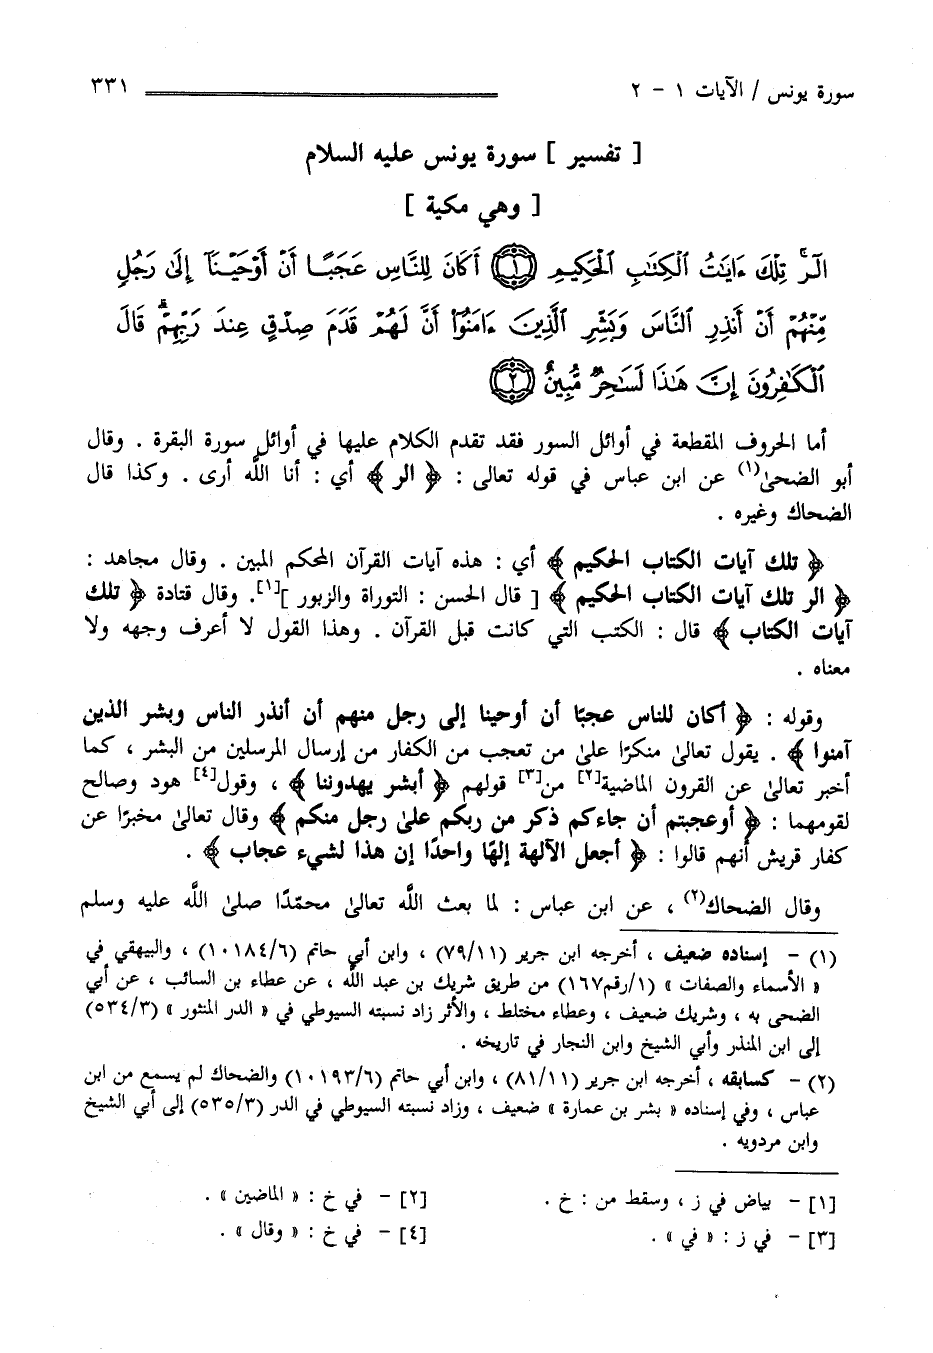 سورة يونس / الآيات ١ - ٢ ٣٣١
[ تفسير ] سورة يونس عليه السلام
[ وهي مكية ]
الٓرۚ تِلۡكَ ءَايَٰتُ ٱلۡكِتَٰبِ ٱلۡحَكِيمِ ١ أَكَانَ لِلنَّاسِ عَجَبًا أَنۡ أَوۡحَيۡنَآ إِلَىٰ رَجُلٖ
مِّنۡهُمۡ أَنۡ أَنذِرِ ٱلنَّاسَ وَبَشِّرِ ٱلَّذِينَ ءَامَنُوٓاْ أَنَّ لَهُمۡ قَدَمَ صِدۡقٍ عِندَ رَبِّهِمۡۗ قَالَ
ٱلۡكَٰفِرُونَ إِنَّ هَٰذَا لَسَٰحِرٞ مُّبِينٌ ٢
أما الحروف المقطعة في أوائل السور فقد تقدم الكلام عليها في أوائل سورة البقرة . وقال
أبو الضحىٰ(١) عن ابن عباس في قوله تعالى : ﴿ الر ﴾ أي : أنا اللَّه أرى . وكذا قال
الضحاك وغيره .
﴿ تلك آيات الكتاب الحكيم ﴾ أي : هذه آيات القرآن المحكم المبين . وقال مجاهد :
﴿ الر تلك آيات الكتاب الحكيم ﴾ [ قال الحسن : التوراة والزبور ][١]. وقال قتادة ﴿ تلك
آيات الكتاب ﴾ قال : الكتب التي كانت قبل القرآن . وهذا القول لا أعرف وجهه ولا
معناه .
وقوله : ﴿ أكان للناس عجبًا أن أوحينا إلى رجل منهم أن أنذر الناس وبشر الذين
آمنوا ﴾ . يقول تعالىٰ منكرًا علىٰ من تعجب من الكفار من إرسال المرسلين من البشر ، كما
أخبر تعالىٰ عن القرون الماضية[٢] من[٣] قولهم ﴿ أبشر يهدوننا ﴾ ، وقول[٤] هود وصالح
لقومهما : ﴿ أوعجبتم أن جاءكم ذكر من ربكم علىٰ رجل منكم ﴾ وقال تعالىٰ مخبرًا عن
كفار قريش أنهم قالوا : ﴿ أجعل الآلهة إلهًا واحدًا إن هذا لشيء عجاب ﴾ .
وقال الضحاك(٢) ، عن ابن عباس : لما بعث اللَّه تعالىٰ محمّدًا صلىٰ اللَّه عليه وسلم
(١) - إسناده ضعيف ، أخرجه ابن جرير (٧٩/١١) ، وابن أبي حاتم (١٠١٨٤/٦) ، والبيهقي في
« الأسماء والصفات » (١/رقم١٦٧) من طريق شريك بن عبد اللَّه ، عن عطاء بن السائب ، عن أبي
الضحى به ، وشريك ضعيف ، وعطاء مختلط ، والأثر زاد نسبته السيوطي في « الدر المنثور » (٥٣٤/٣)
إلى ابن المنذر وأبي الشيخ وابن النجار في تاريخه .
(٢) - كسابقه ، أخرجه ابن جرير (٨١/١١) ، وابن أبي حاتم (١٠١٩٣/٦) والضحاك لم يسمع من ابن
عباس ، وفي إسناده « بشر بن عمارة » ضعيف ، وزاد نسبته السيوطي في الدر (٥٣٥/٣) إلى أبي الشيخ
وابن مردويه .
[١] - بياض في ز ، وسقط من : خ . [٢] - في خ : « الماضين » .
[٣] - في ز : « في » . [٤] - في خ : « وقال » .